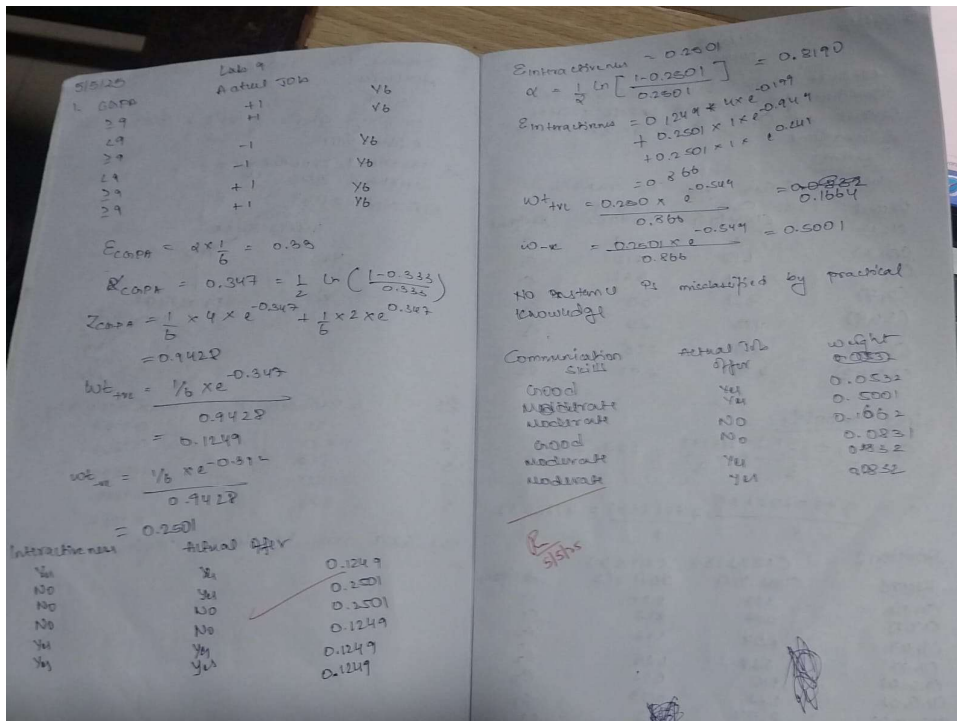 5/5/25
Lab 9
1. CGPA Actual Job
≥9 +1 1/6
<9 +1 1/6
≥9 -1 1/6
<9 -1 1/6
≥9 +1 1/6
≥9 +1 1/6
E_CGPA = 2 × 1/6 = 0.33
α_CGPA = 0.347 = 1/2 ln (1-0.333 / 0.333)
Z_CGPA = 1/6 × 4 × e^-0.347 + 1/6 × 2 × e^0.347
= 0.9428
wt_+ve = 1/6 × e^-0.347 / 0.9428
= 0.1249
wt_-ve = 1/6 × e / 0.9428
= 0.2501
Interactiveness Actual Offer
Yes Yes 0.1249
No Yes 0.2501
No No 0.2501
No No 0.1249
Yes Yes 0.1249
Yes Yes 0.1249
E interactiveness = 0.2501
α = 1/2 ln [1-0.2501 / 0.2501] =
= 0.1249 * 4 × e
+ 0.2501 × 1 × e
+ 0.2501 × 1 × e
= 0.866
wt_+ve = 0.250 × e^-0.549 / 0.866 = 0.1664
w-ve = 0.2501 × e^-0.549 / 0.866 = 0.5001
No instance is misclassified by practical
knowledge
Communication Skill Actual Job Offer Weight
Good Yes 0.0832
Moderate Yes 0.5001
Moderate No
Good No 0.0831
Moderate Yes 0832
Moderate Yes 0.0832
5/5/25